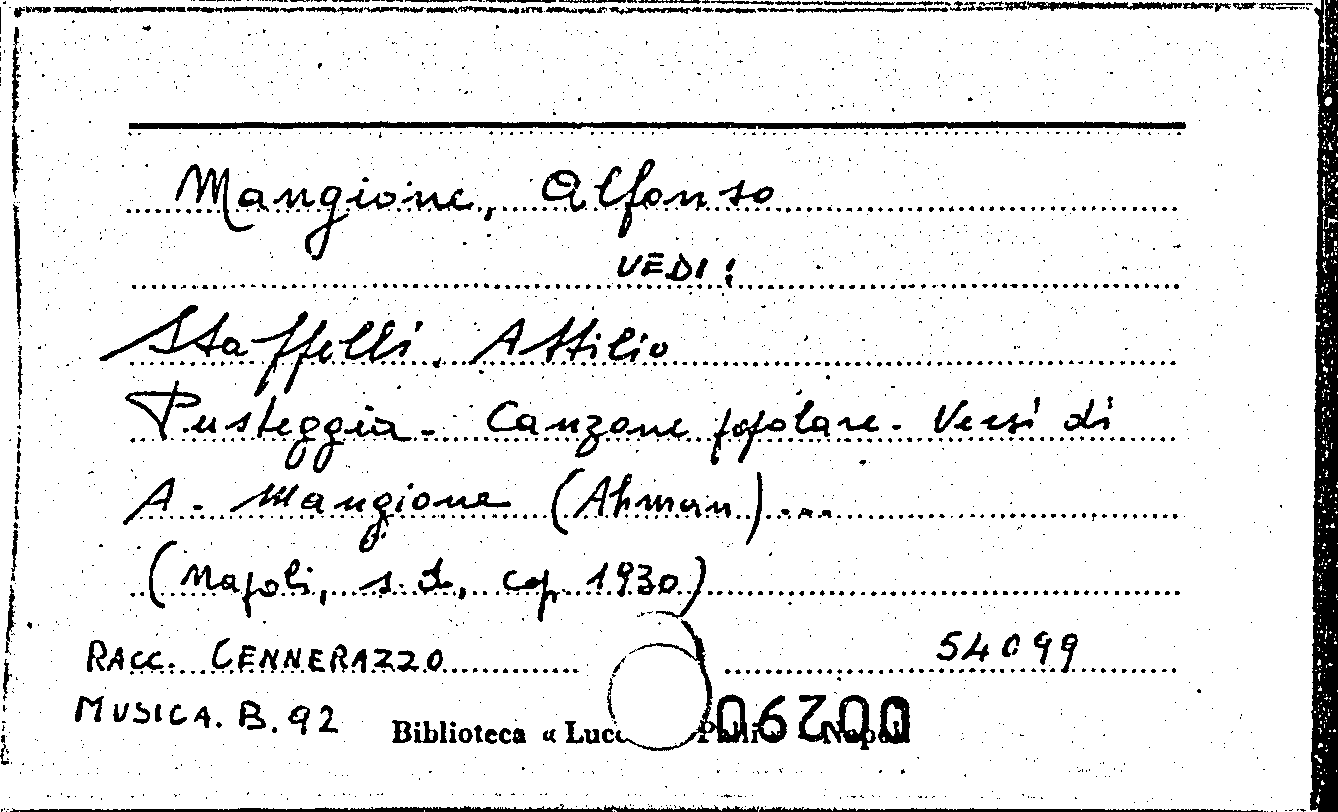 Mangione, Alfonso
VEDI:
Staffelli, Attilio
Pusteggia. Canzone popolare. Versi di
A. Mangione (Ahman)...
(Napoli, s.d., cop. 1930)
RACC. CENNERAZZO 54099
MUSICA. B. 92
Biblioteca « Lucc Palli Napoli
00290